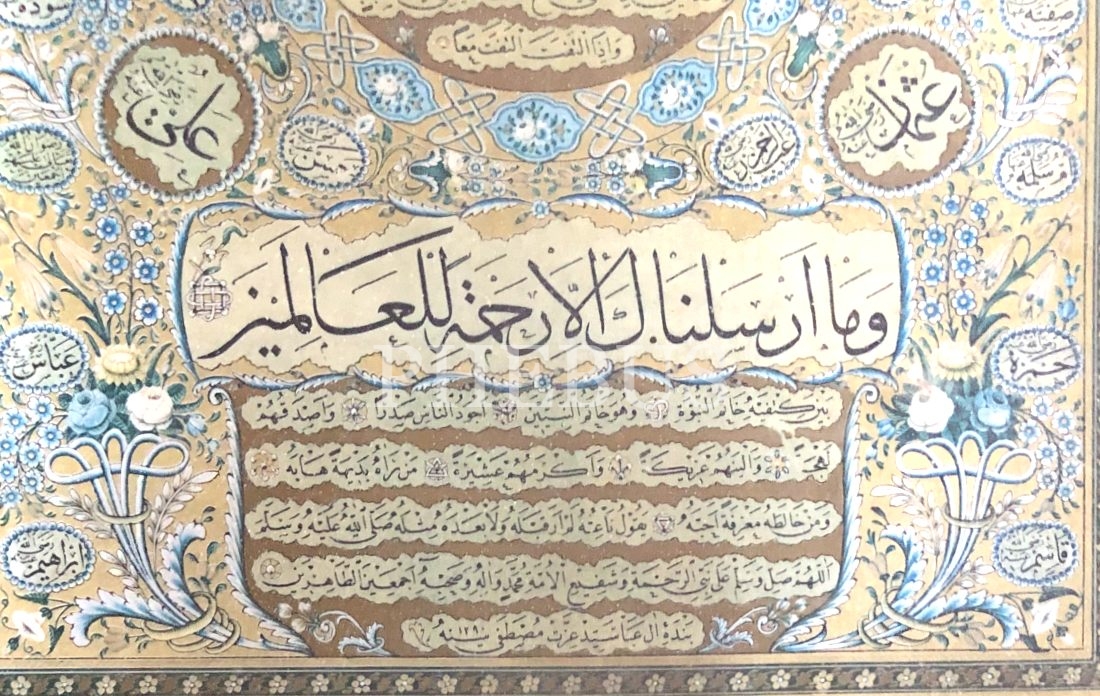 واذا التفت التفت معا
عثمان
علي
حسن
مسلمة
وما ارسلناك الا رحمة للعالمين
PHEBUS
حمزة
عباس
بين كتفيه خاتم النبوة وهو خاتم النبيين اجود الناس صدرا واصدقهم
لهجة والينهم عريكة واكرمهم عشيرة من رآه بديهة هابه
ومن خالطه معرفة احبه يقول ناعته لم ار قبله ولا بعده مثله صلى الله عليه وسلم
اللهم صل وسلم على نبي الرحمة وشفيع الامة محمد وآله وصحبه اجمعين الطاهرين
قاسم
ابراهيم
بنده آل عبا سيد عزت مصطفى سنه ١٢٩١